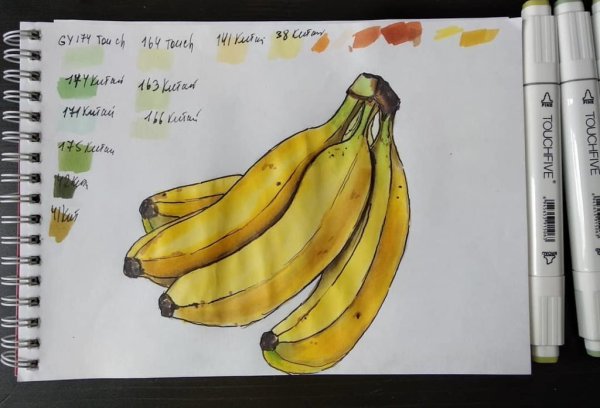 GY174 Touch 164 Touch 141 Китай 38 Китай
174 Китай 163 Китай
171 Китай 166 Китай
175 Китай
41 Кит
TOUCHFIVE
TOUCHFIVE